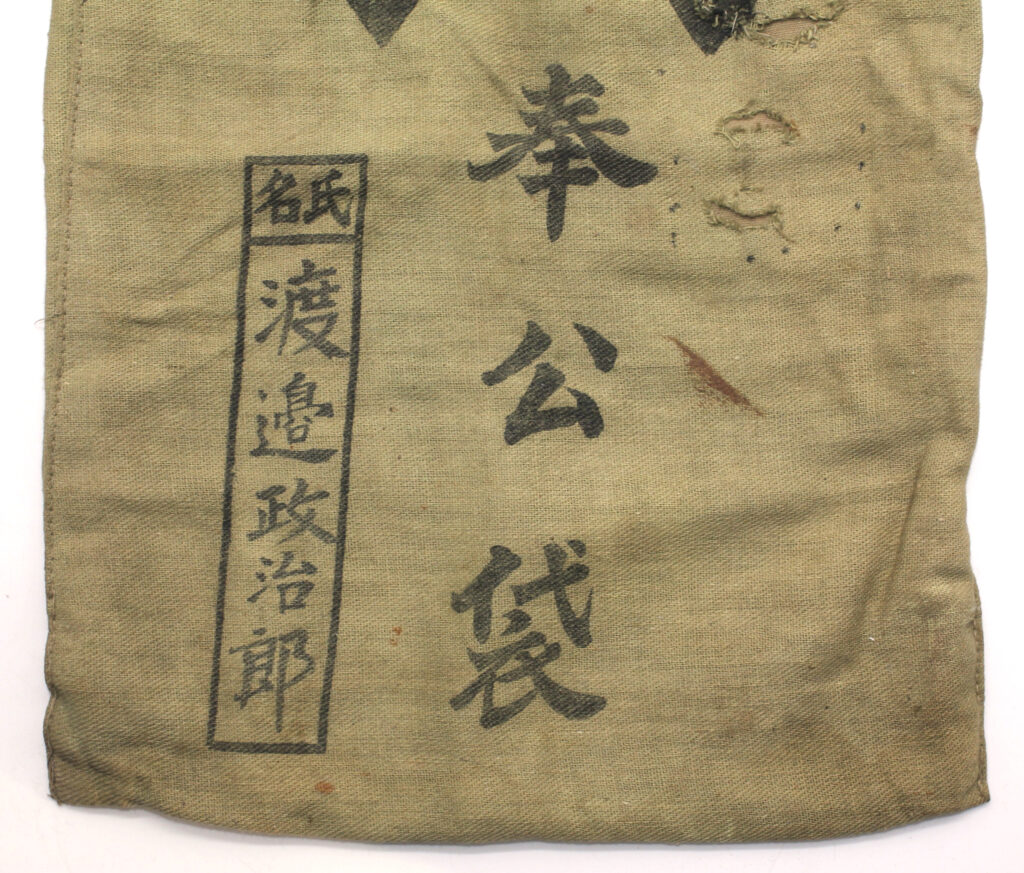 奉公袋
氏名
渡邉政治郎